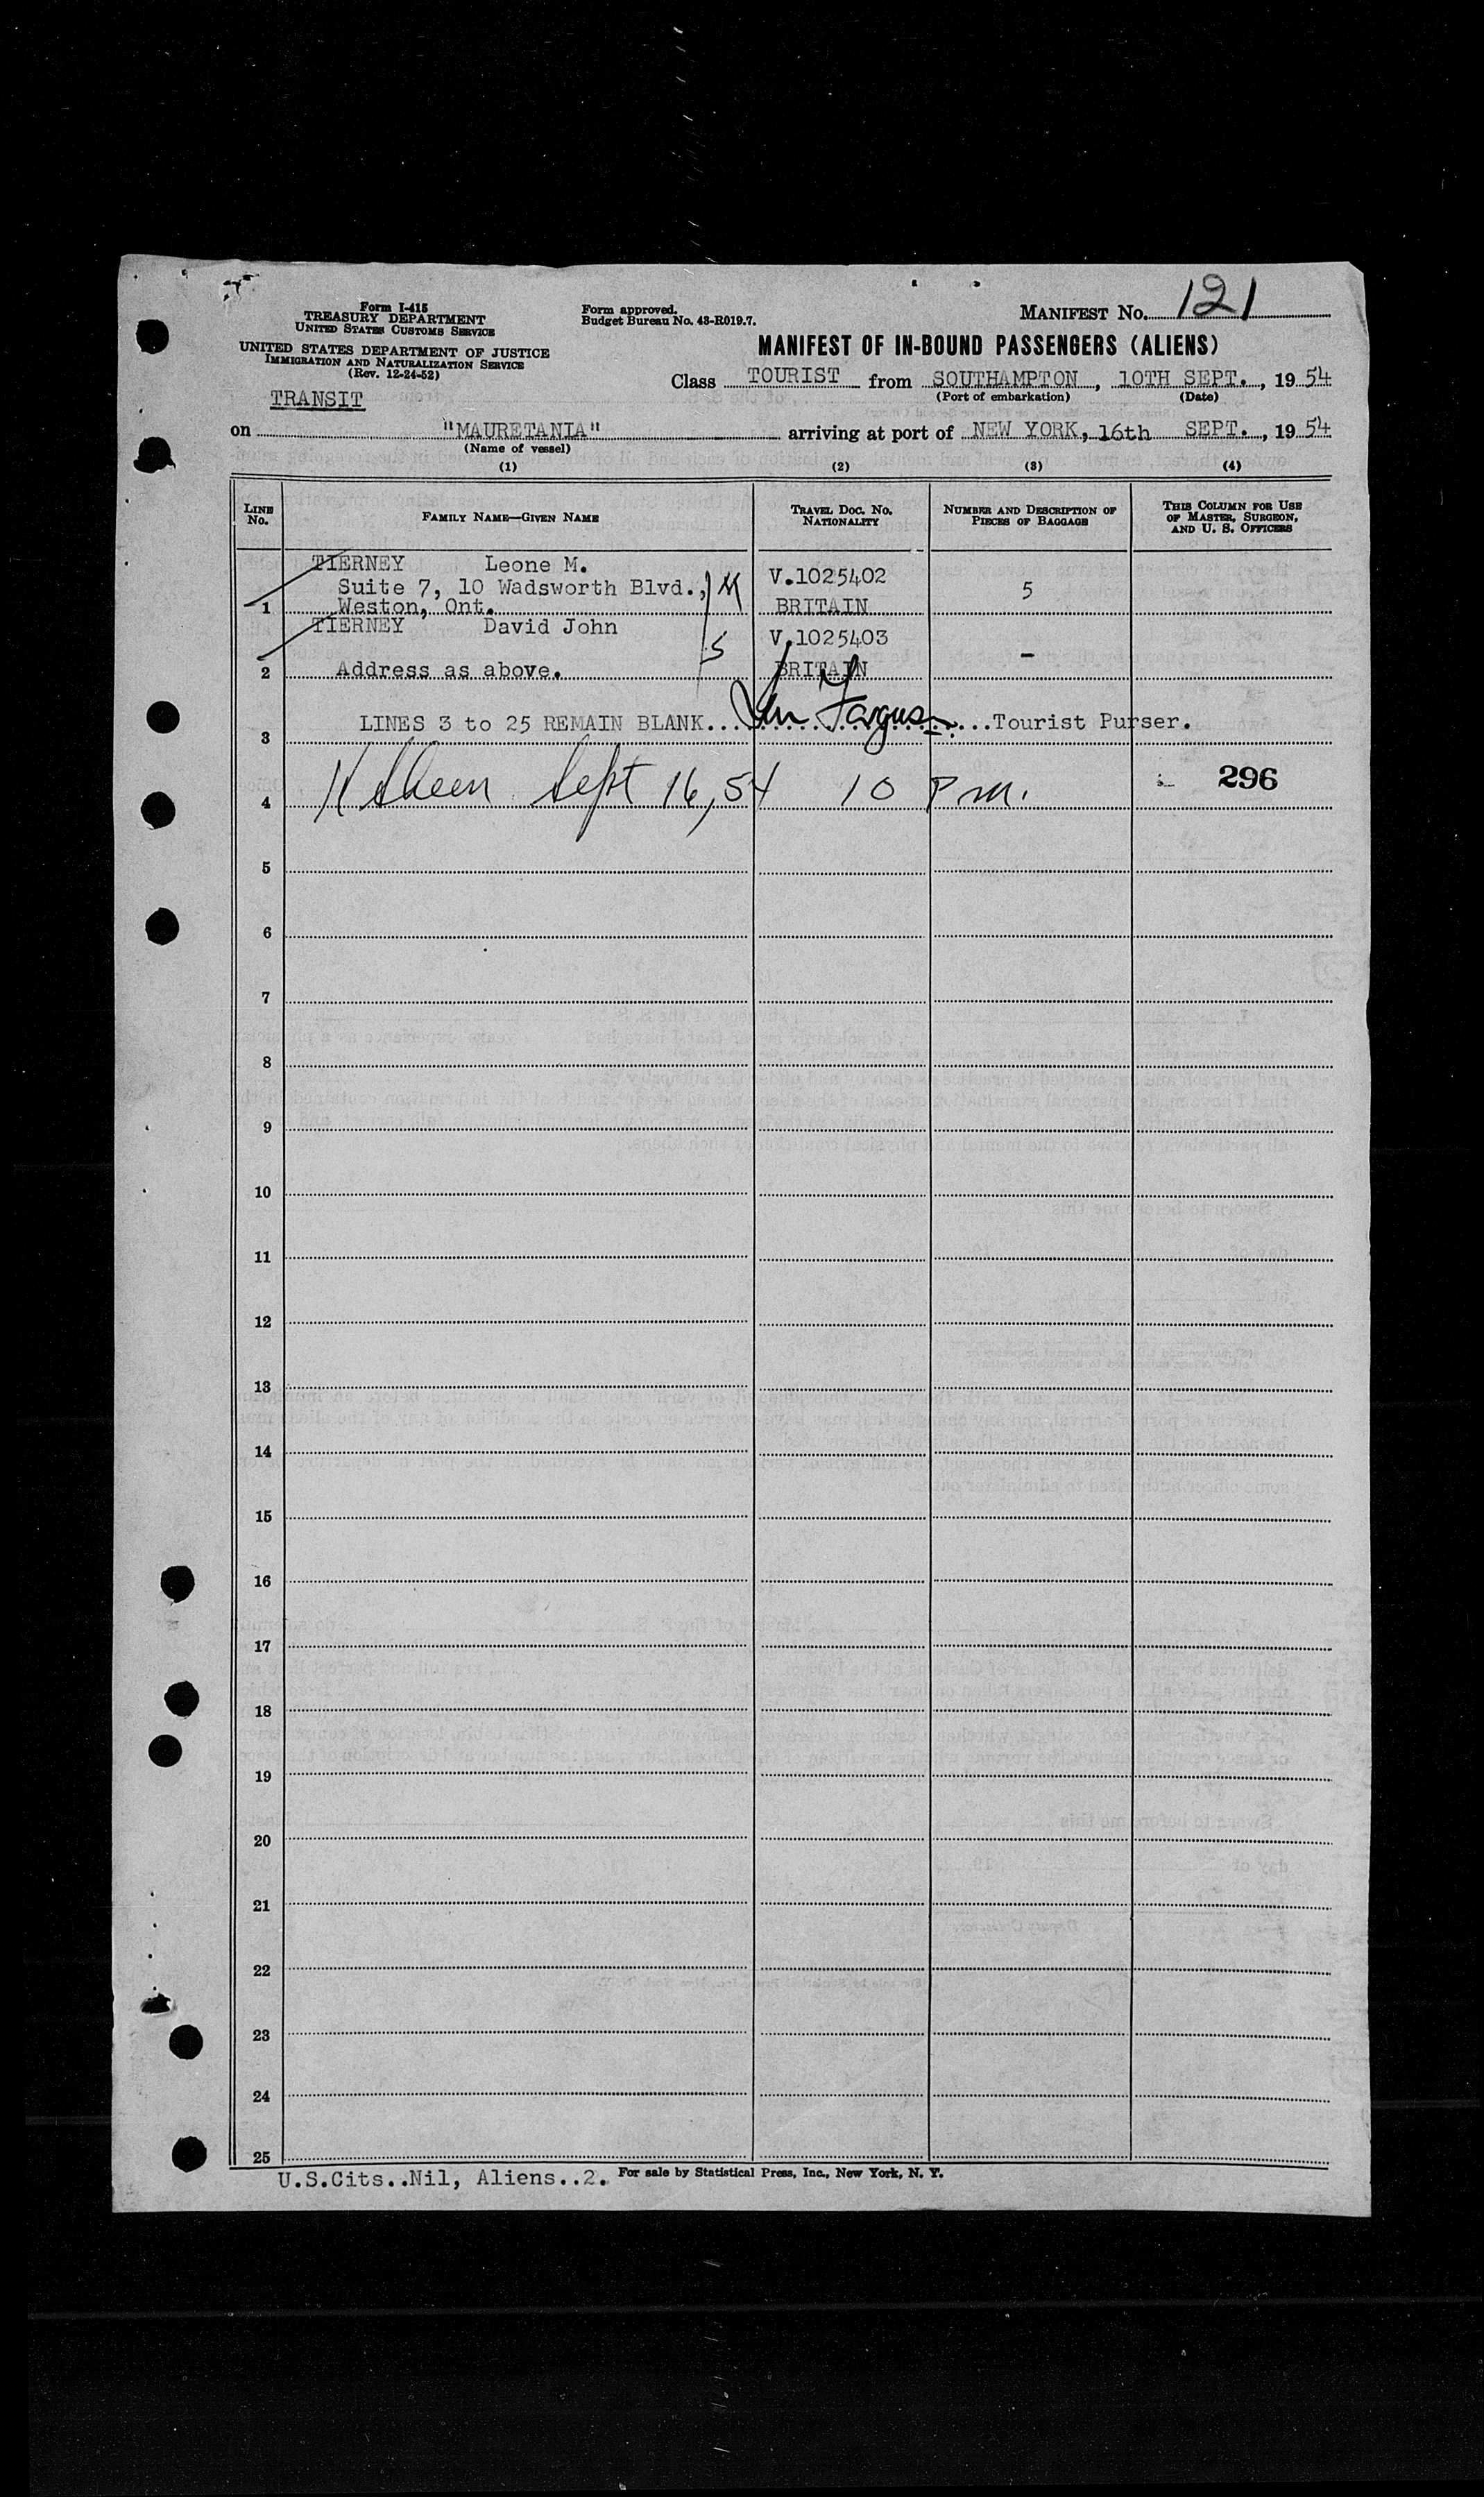 Form I-415
TREASURY DEPARTMENT
UNITED STATES CUSTOMS SERVICE
UNITED STATES DEPARTMENT OF JUSTICE
IMMIGRATION AND NATURALIZATION SERVICE
(Rev. 12-24-52)
Form approved.
Budget Bureau No. 43-R019.7.
MANIFEST No. 121
MANIFEST OF IN-BOUND PASSENGERS (ALIENS)
Class TOURIST from SOUTHAMPTON, 10TH SEPT., 1954
(Port of embarkation) (Date)
TRANSIT
on "MAURETANIA" arriving at port of NEW YORK, 16th SEPT., 1954
(Name of vessel)
(1) (2) (3) (4)
LINE No. FAMILY NAME—GIVEN NAME TRAVEL DOC. No. NATIONALITY NUMBER AND DESCRIPTION OF PIECES OF BAGGAGE THIS COLUMN FOR USE OF MASTER, SURGEON, AND U. S. OFFICERS
TIERNEY Leone M. V.1025402
Suite 7, 10 Wadsworth Blvd., M 5
1 Weston, Ont. BRITAIN
TIERNEY David John V.1025403
S -
2 Address as above. BRITAIN
3 LINES 3 to 25 REMAIN BLANK.. Tourist Purser.
4 Sept 16, 54 10 P m. 296
5
6
7
8
9
10
11
12
13
14
15
16
17
18
19
20
21
22
23
24
25
U.S.Cits..Nil, Aliens..2. For sale by Statistical Press, Inc., New York, N. Y.